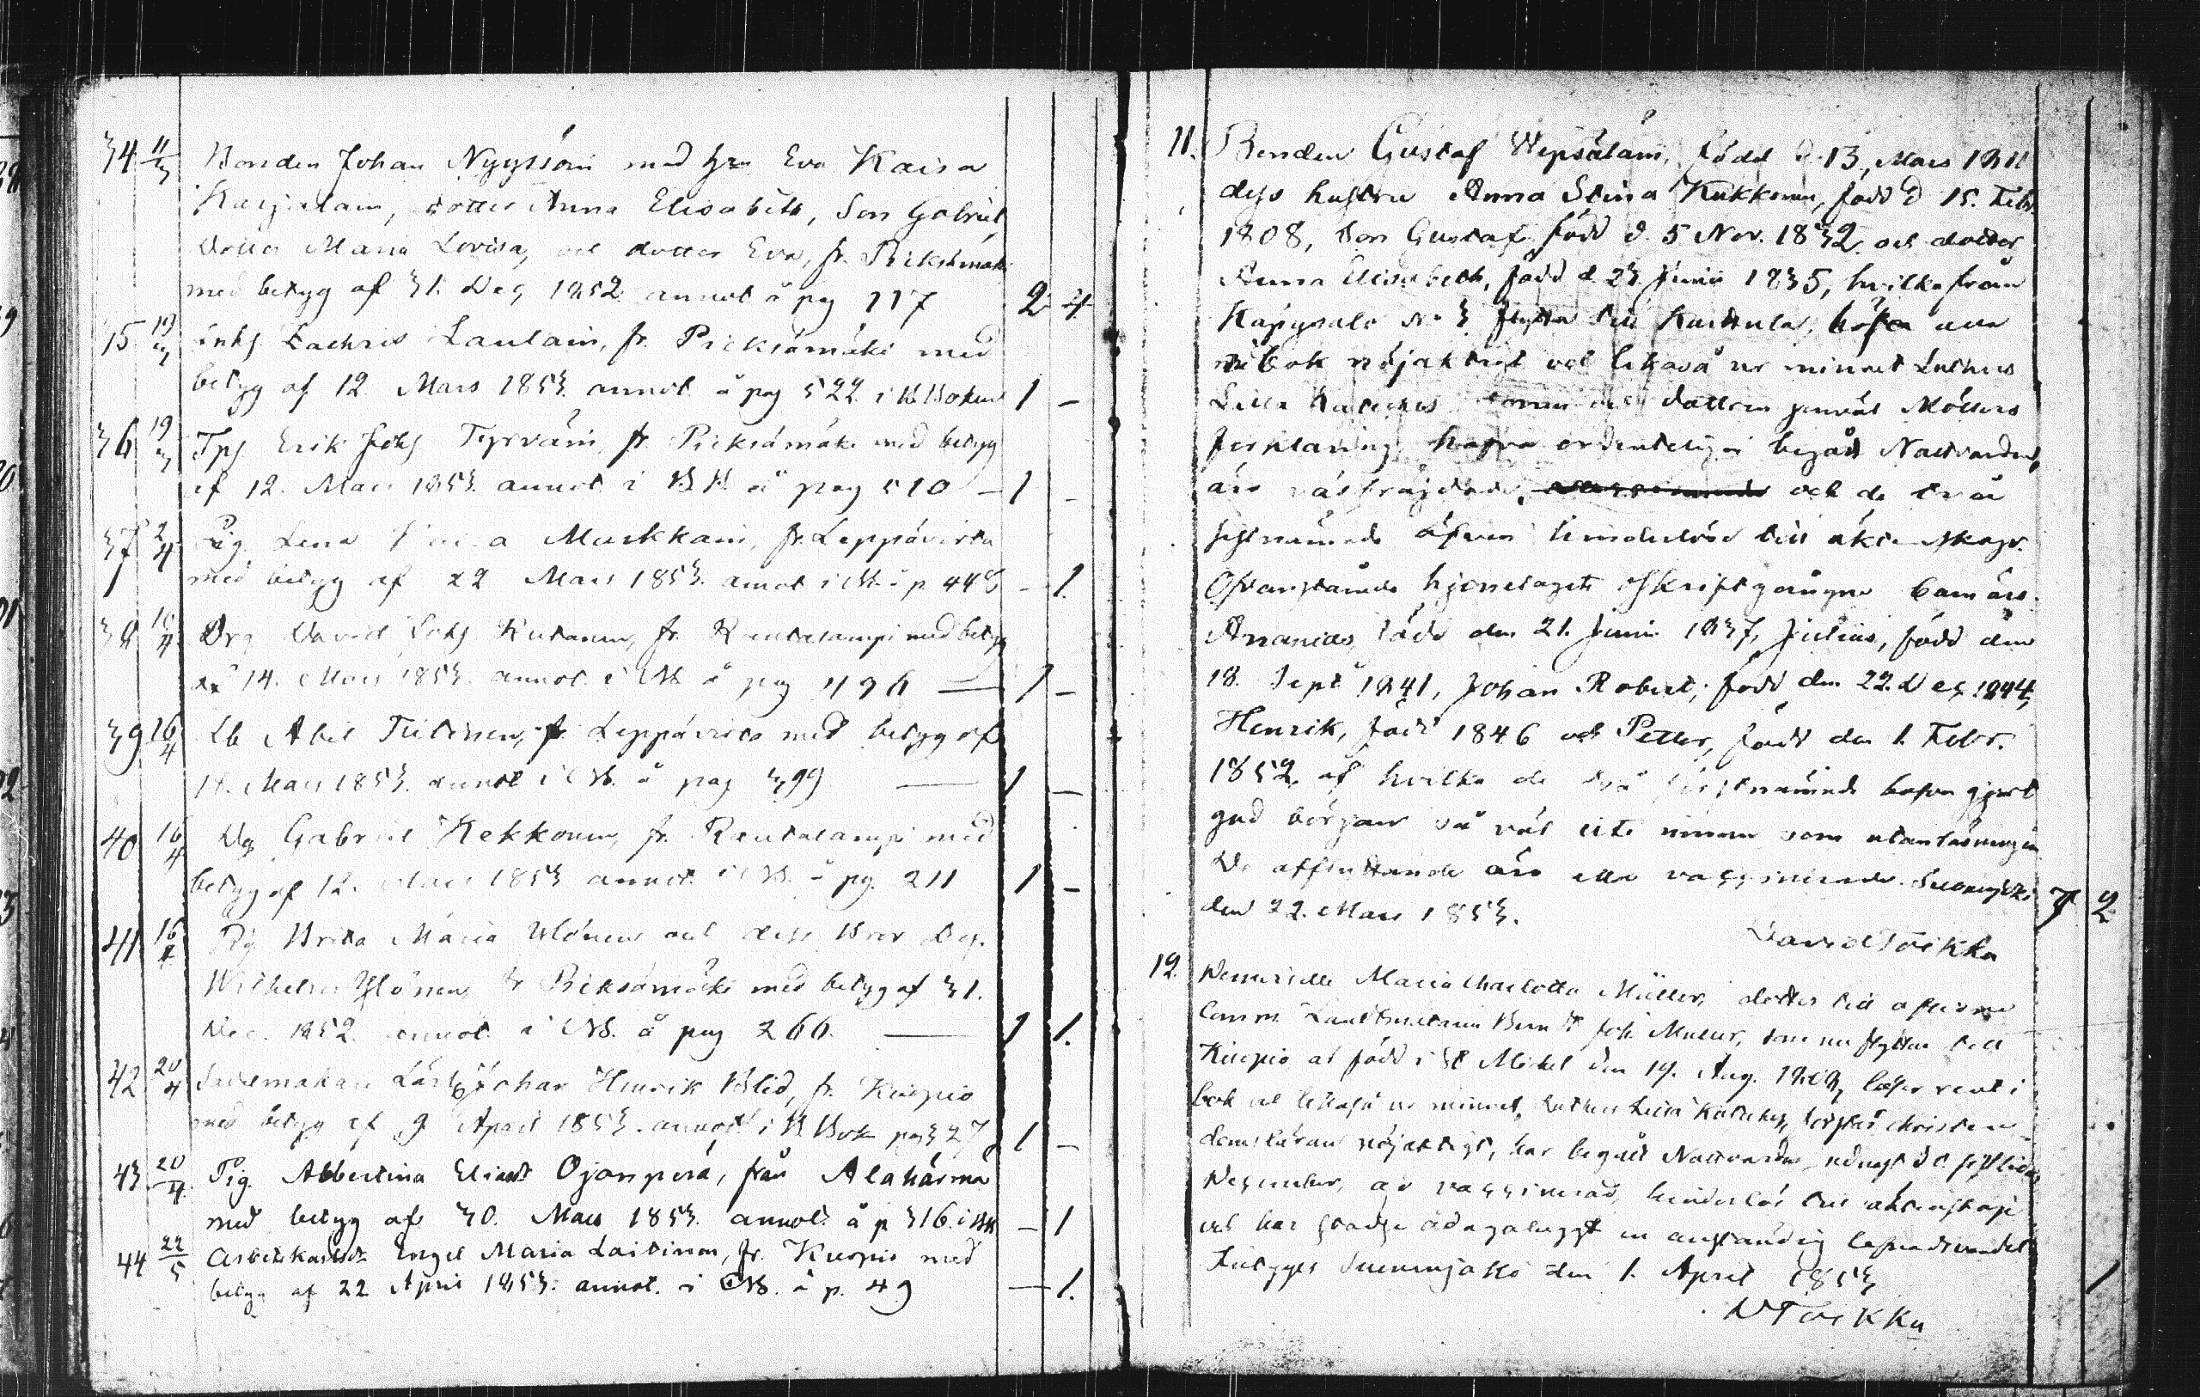 34 11/3 Bonden Johan Nyyssöin med h:u Eva Kaisa
Karjalain, dotter Anna Elisabeth, Son Gabriel,
dotter Maria Lovisa, och dotter Eva, fr. Pieksämäki
med betyg af 31. Dec. 1852 annot å pag 117 2 4
35 19/3 Zachris Laulain, fr. Pieksämäki med
betyg af 12. Mars 1853 annot å pag 522 i K Boken 1 –
36 19/3 Erik Johs Tyrväin, fr. Pieksämäki med betyg
af 12. Mars 1853. annot i å pag 510 – 1 –
37 2/4 Pig. Lena Muskkain, fr. Leppävirta
med betyg af 22 Mars 1853. annot i å p 448 – 1.
38 16/4 Drg David Johs fr. Rautalampi med betyg
14. Mars 1853. annot. i å pag 496 — 1 –
39 16/4 Abel Tiitinen, fr. Leppävirta med betyg af
14. Mars 1853. annot i å pag 399 — 1 –
40 16/4 Dg Gabriel Kekkonen, fr. Rautalampi med
betyg af 12. Mars 1853 annot. i å pg. 211 1 –
41 16/4 Pig. Brita Maria Ulönen och dess Bror Dg.
Wilhelm Ylönen, fr Pieksämäki med betyg af 31.
Dec. 1852. annot i å pag 266. — 1 1.
42 20/4 Johan Henrik Blid, fr. Kuopio
med betyg af 9 April 1853. annot i K Bok pag 327 1 –
43 20/4 Pig. Abbertina Ojanperä, från Alahärmä
med betyg af 30. Mars 1853. annot. å p 316. i – 1
44 22/5 Engel Maria Laitinen, fr. Kuopio med
betyg af 22 April 1853. annot. i å p. 49 — 1.
11. Bonden Gustaf Wepsäläin, född d. 13. Mars 1811
dess hustru Anna Stina Kukkonen, född d 15. Febr.
1808, Son Gustaf född d. 5 Nov. 1832 och dotter
Anna Elisabeth, född d 23 Junii 1835, hvilka från
Käpysalo No 3 flytta till Karttula, läsa
bok nöjaktigt och likaså ur minnet Luthers
Lilla Kateches dottren jemväl Möllers
förklaring, hafva ordentligen begått Nattvarden,
äro väl frejdade, och de två
sistnämnde äfven hinderlöse till äktenskap.
Ofvanstående hjonelagets oskriftgångne barn äro
Ananias, född den 21. Junii 1837, Julius, född den
18. Sept 1841, Johan Robert, född den 22. Dec. 1844,
Henrik, född 1846 och Petter, född den 1. Febr.
1852, af hvilka de två förstnämnde hafva gjort
god början så väl uti innan som utanläsningen
De afflyttande äro alla vaccinerade. Suonenjoki 7 2
den 22. Mars 1853.
David Toikka
12. Demoiselle Maria Charlotta Müller, dotter till aflidne
Comm. Landtmätaren Bernt Joh. Müller, som nu flyttar till
Kuopio är född i St Michel den 19. Aug. läser rent i
bok och likaså ur minnet, Luthers Lilla Kateches, förstår christen-
domsläran nöjaktigt, har begått Nattvarden, sednast d. sistlidne
December, är vaccinerad, hinderlös till äktenskap
och har städse ådagalaggt en anständig lefnadsvandel
Betygges Suonenjoki den 1. April 1853 1
D Toikka